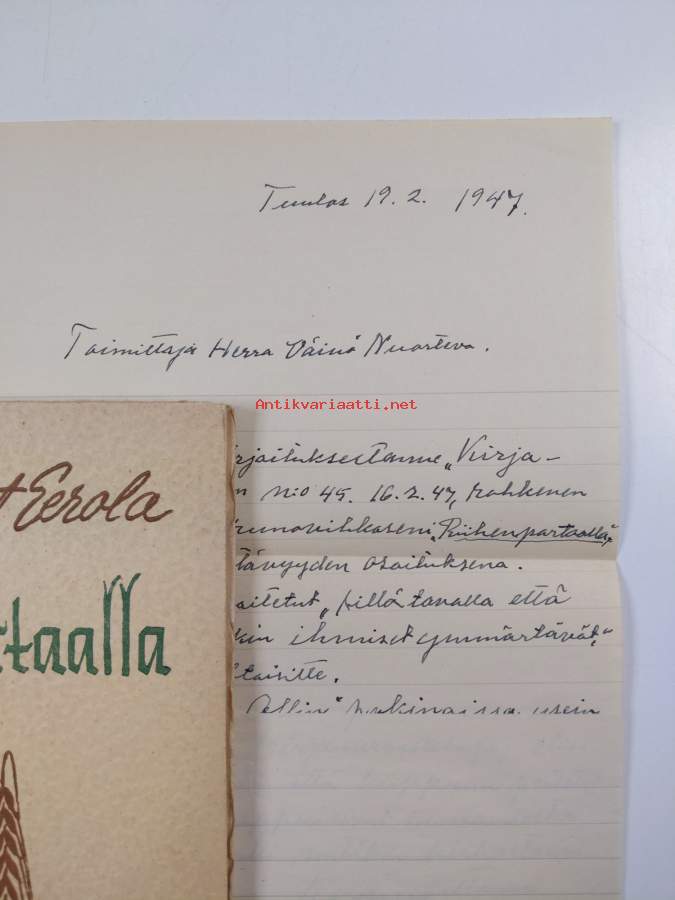 Tuulos 19. 2. 1947.
Toimittaja Herra Väinö Nuorteva.
Antikvariaatti.net
rjoituksestanne „Kirja-
n n:o 45. 16.2.47, rohkenen
runovihkoseni „Riihenpartaalla”,
tävyyden osoituksena.
oitetut „sillä tavalla että
kin ihmiset ymmärtävät,”
taisitte.
usein
t Eerola
rtaalla